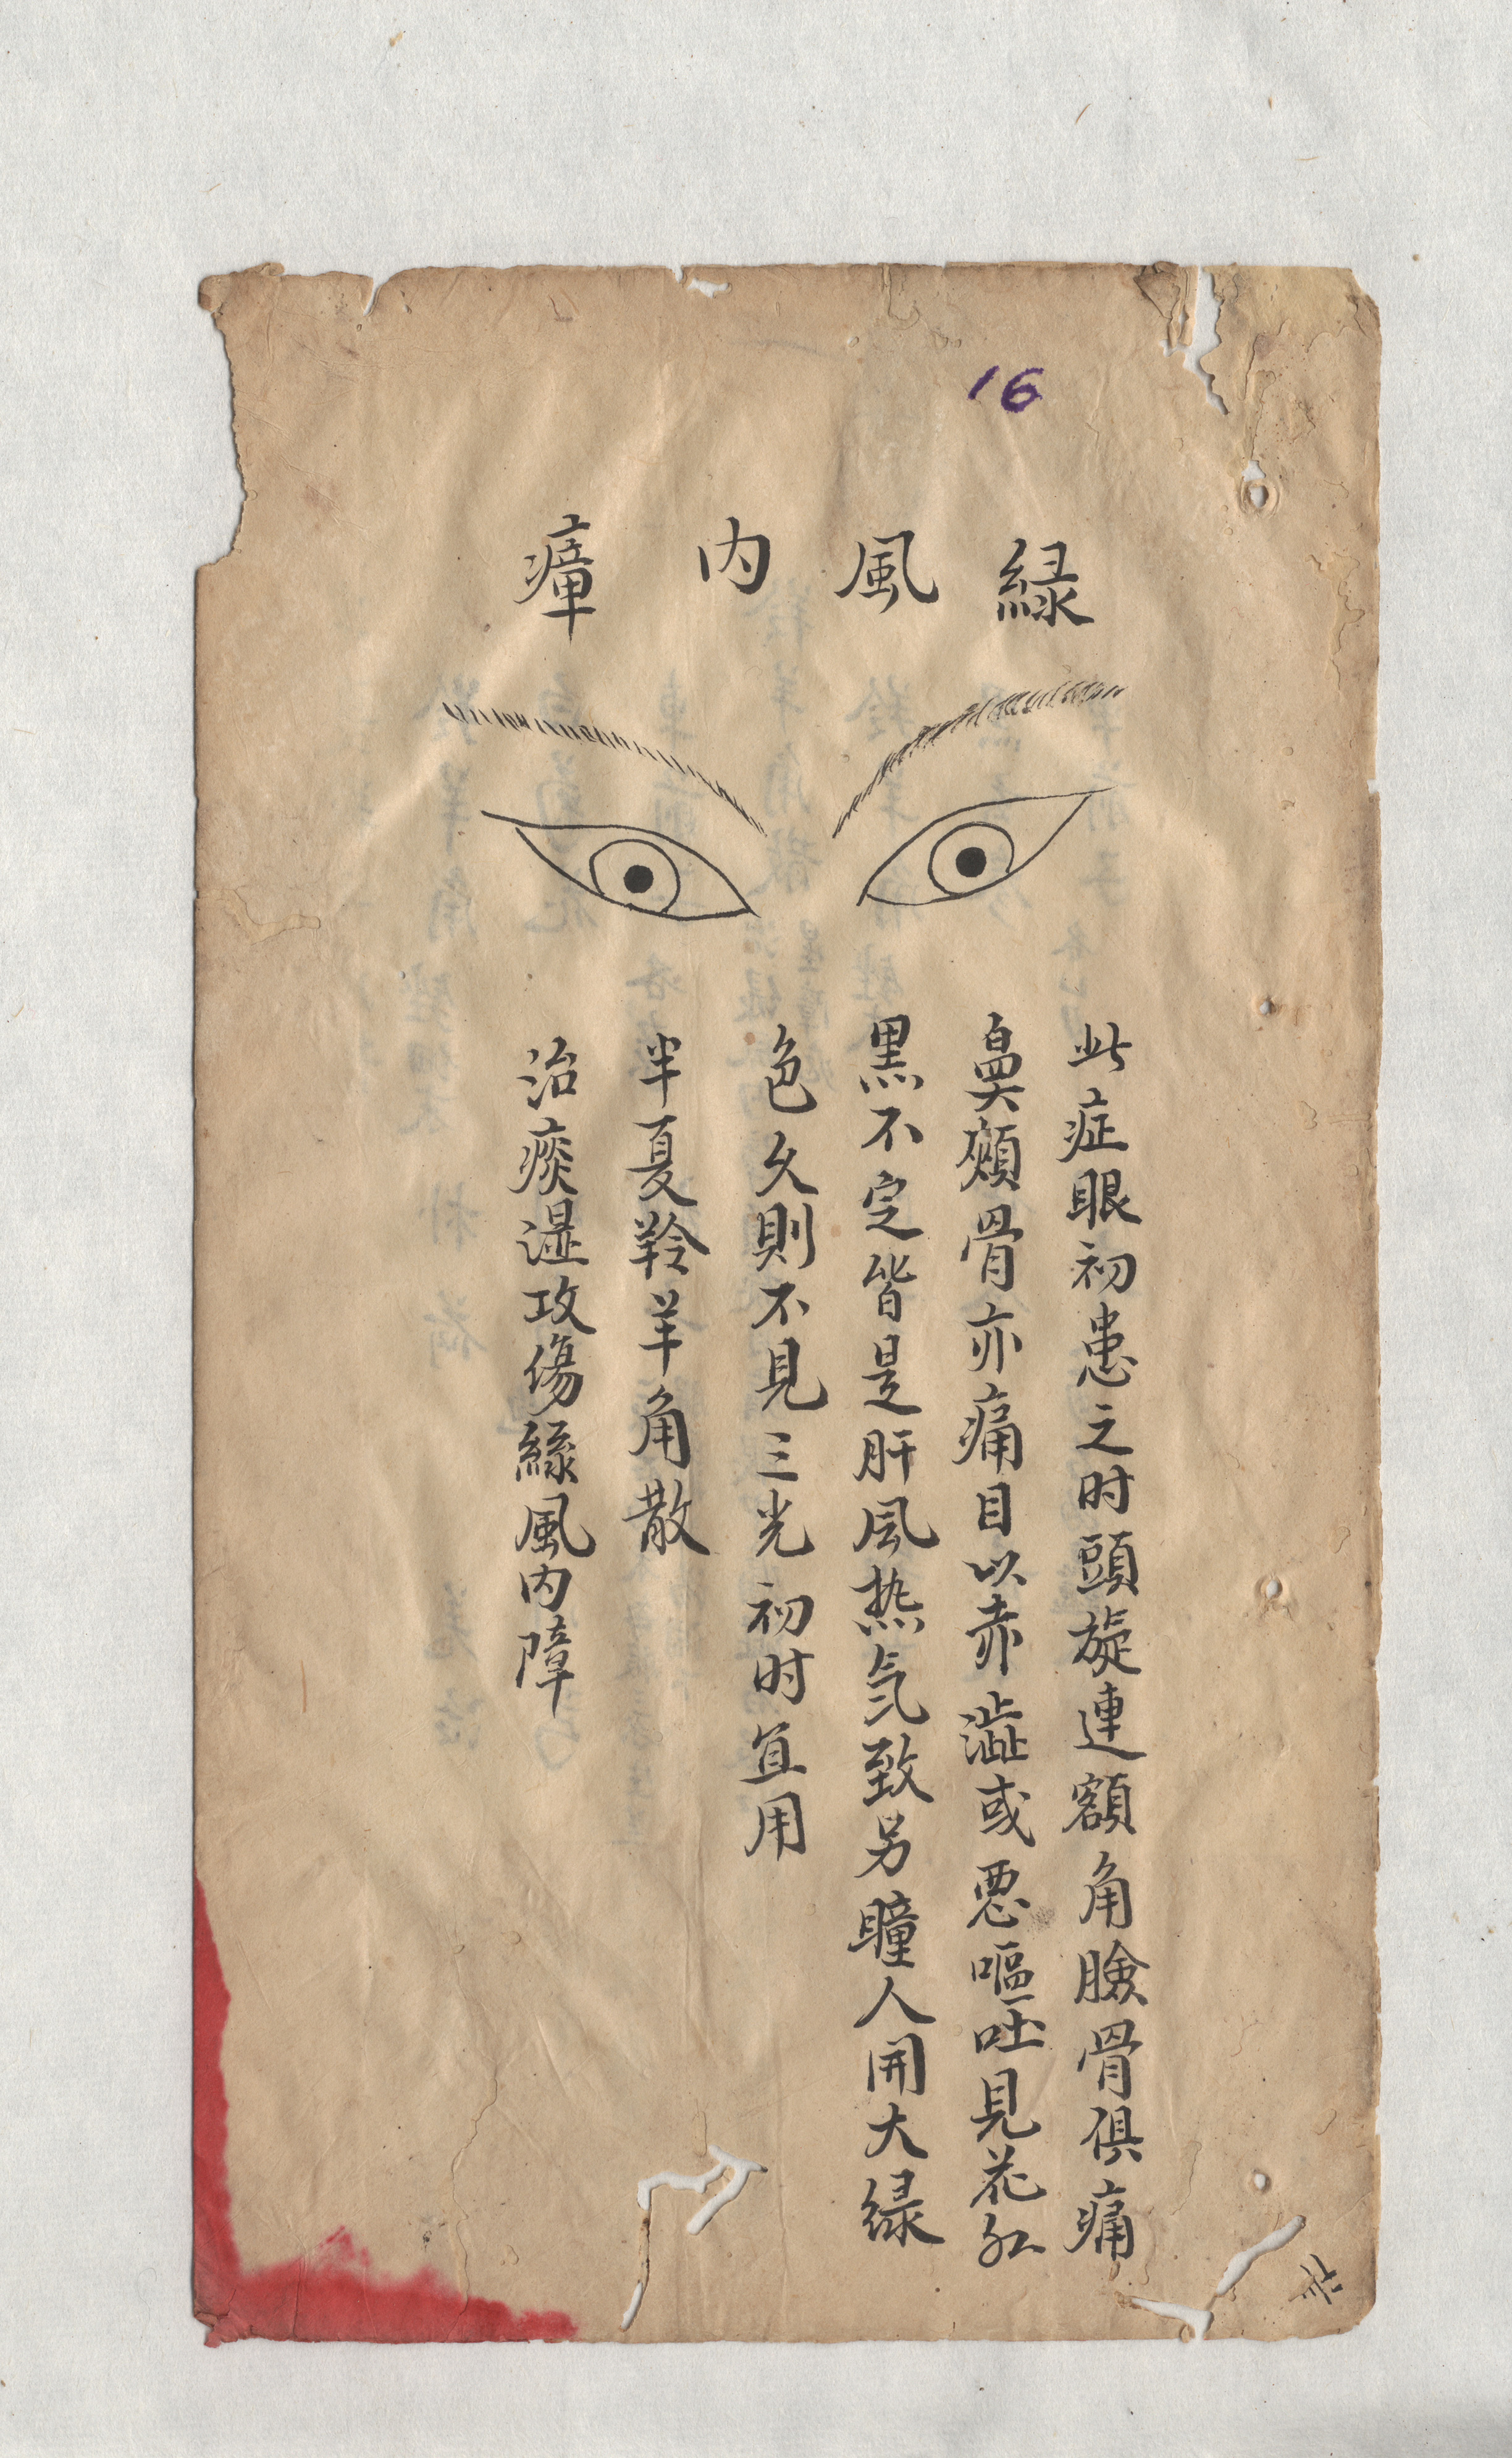 16
緑風内瘴
此症眼初患之时頭旋連額角臉骨俱痛
鼻頰骨亦痛目以赤澁或悪嘔吐見花红
黒不定皆是肝风热気致另瞳人開大緑
色久則不見三光初时宜用
半夏羚羊角散
治痰湿攻傷緣風内障